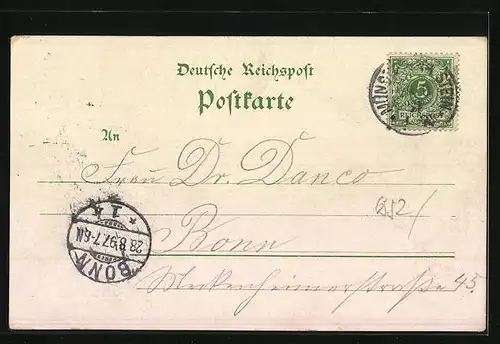 Deutsche Reichspost
Postkarte
5
REICHSPOST
An
Frau Dr. Danco
Bonn
Meckenheimerstraße 45.
BONN
28.8.97.7-8N.
* 1 *